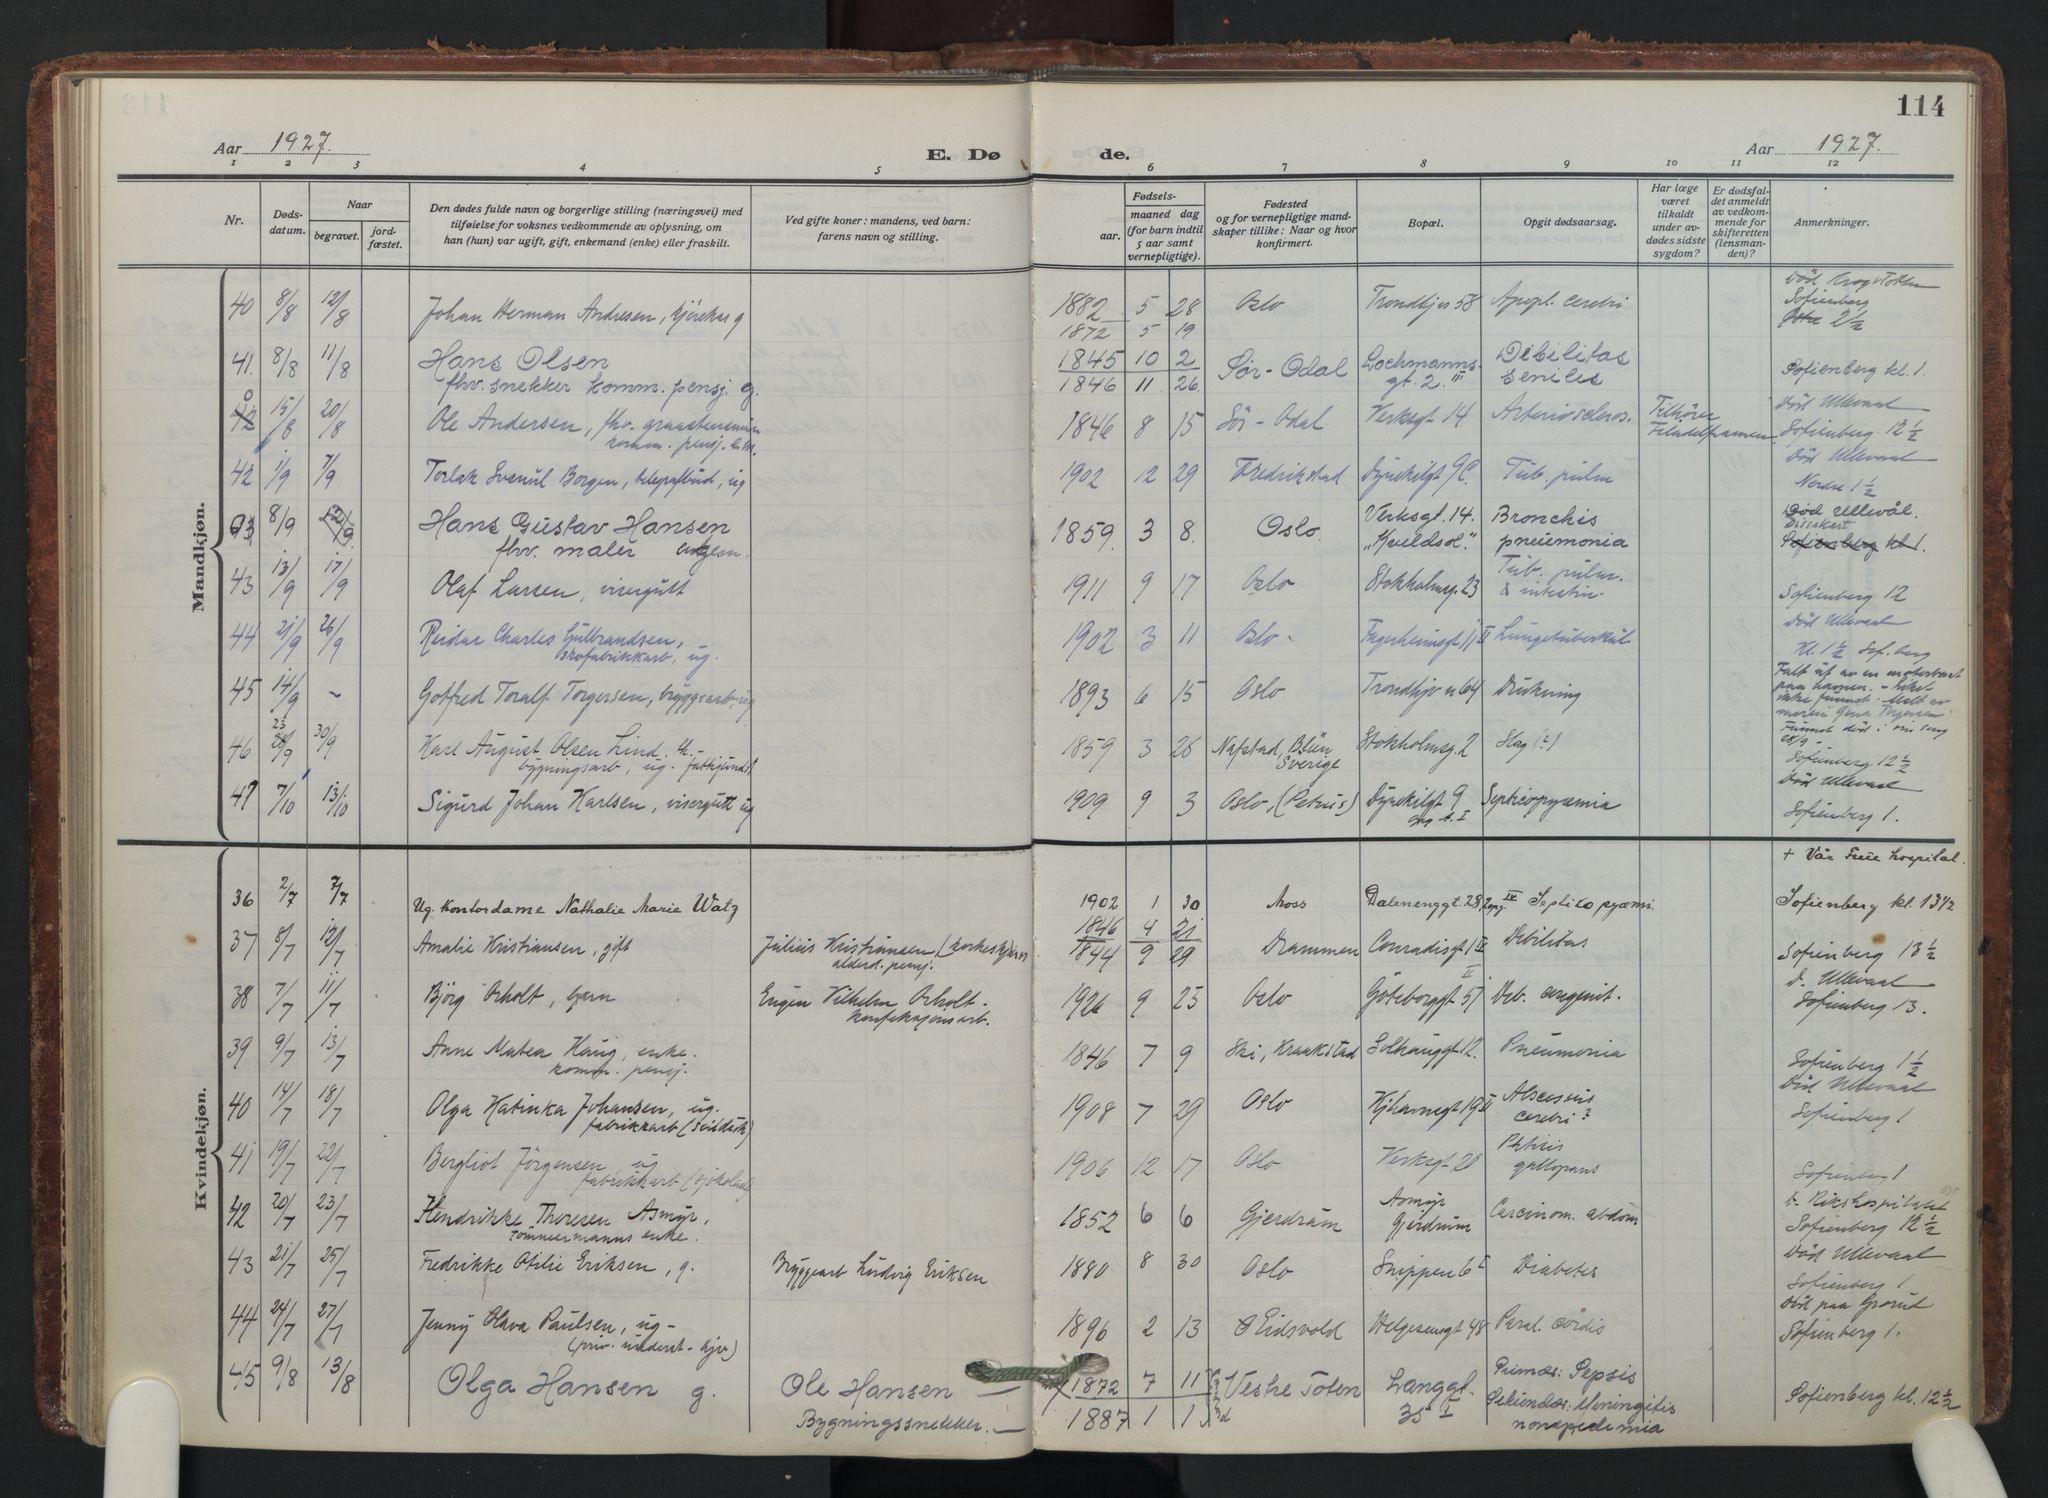 114
Aar 1927.
E. Dø de.
Aar 1927.
1 2 3 4 5 6 7 8 9 10 11 12
Nr.
Døds-
datum.
Naar
begravet.
jord-
fæstet.
Den dødes fulde navn og borgerlige stilling (næringsvei) med
tilføielse for voksnes vedkommende av oplysning, om
han (hun) var ugift, gift, enkemand (enke) eller fraskilt.
Ved gifte koner: mandens, ved barn:
farens navn og stilling.
Fødsels-
aar.
maaned dag
(for barn indtil
5 aar samt
vernepligtige).
Fødested
og for vernepligtige mand-
skaper tillike: Naar og hvor
konfirmert.
Bopæl.
Opgit dødsaarsag.
Har læge
været
tilkaldt
under av-
dødes sidste
sygdom?
Er dødsfal-
det anmeldt
av vedkom-
mende for
skifteretten
(lensman-
den)?
Anmerkninger.
Mandkjøn.
40 8/8 12/8 Johan Herman Andresen, kjørekar g 1882 5 28 Oslo Trondhjv 58 Apopl. cerebri
1872 5 19
Sofienberg
2 1/2
41. 8/8 11/8 Hans Olsen 1845 10 2 Sør-Odal Lochmanns- Debilitas
fhv. snekker komm. pensj. g. 1846 11 26 gt. 2 III seniles Sofienberg kl. 1.
42 15/8 20/8 Ole Andersen, fhv. 1846 8 15 Sör-Odal Verksgt 14 Arterioscleros. Tilhører
komm. pensj.
Död Ullevaal
Sofienberg 12 1/2
42 1/9 7/9 Torlak Svenul Borgen, telegrafbud, ug 1902 12 29 Fredrikstad Dynekilgt 9C. Tub. pulm
Död Ullevaal
Nordre 1 1/2
8/9 12/9 Hans Gustav Hansen 1859. 3 8. Oslo. Verksgt. 14. Bronchis
fhv. maler "Kveldsol". pneumonia
Død Ullevål.
Sofienberg kl 1.
43 13/9 17/9 Olaf Larsen, visergutt 1911 9 17 Oslo Stokholmsg. 23 Tub. pulm.
& intestin.
Sofienberg 12
44 21/9 26/9 Reidar Charles Gulbrandsen, 1902 3 11 Oslo - Fagerheimsgt 11 II Lungetuberkul
ug.
Död Ullevaal
Kl. 1 1/2 Sof. berg
45 14/9 - Gotfred Toralf Torgersen, bryggearb, ug 1893 6 15 Oslo Trondhjv n 64 Drukning
Falt ut av en motorbaat
paa havnen. - Liket
ikke funnet.
46 23 30/9 Karl August Olsen Lind, 1859 3 26 Stokholmsg. 2 Slag (?)
bygningsarb, ug. fattigunderst. Sverige
Funnet död i sin seng
28/9 -
Sofienberg 12 1/2
47 7/10 13/10 Sigurd Johan Karlsen, visergutt ug 1909 9 3 Oslo, (Petrus) Dynekilgt 9 Septicopyæmia
Död Ullevaal
Sofienberg 1.
Kvindekjøn.
+ Vår Frue hospital.
36 2/7 7/7 Ug. Kontordame Nathalie Marie Watz 1902 1 30 Moss Dalenenggt. 28, IV Septico pyæmi. Sofienberg kl. 13 1/2
37 8/7 12/7 Amalie Kristiansen, gift Julius Kristiansen, 1846 4 21 Drammen Conradisgt 1 II Debilitas
alderd. pensj. 1844 9 29 Sofienberg 13 1/2
38 7/7 11/7 Björg Orholt, barn Eugen Vilhelm Orholt. 1926 9 23 Oslo Göteborggt 51 Deb. congenit.
konfeksjonsarb.
D. Ullevaal
Sofienberg 13.
39 9/7 13/7 Anne Matea Haug, enke. 1846 7 9 Ski, Kraakstad Solhauggt 12. Pneumonia
komm. pensj.
Sofienberg 1 1/2
40 14/7 18/7 Olga Katinka Johansen, ug. 1908 7 29 Oslo Kjhavnsgt 19 Abscessus
fabrikkarb cerebri?
Död Ullevaal
Sofienberg 1
41 19/7 22/7 Bergliot Jörgensen ug 1906 12 17 Oslo Verksgt 20 Phthisis
fabrikkarb (sjokolade) gallopans
Sofienberg 1
42 20/7 23/7 Hendrikke Thoresen Asmyr, 1852 6 6 Gjerdrum Asmyr Carcinom. abdom
Tömmermanns enke. Gjerdrum
D. Rikshospitalet
Sofienberg 12 1/2
43 21/7 25/7 Fredrikke Otilie Eriksen, g. Bryggearb Ludvig Eriksen 1880 8 30 Oslo Snippen 6 I Diabetes
Död Ullevaal
Sofienberg 1
44 24/7 27/7 Jenny Olava Paulsen, ug - 1896 2 13 Eidsvold Helgesensgt 48 Paral. cordis
(priv. underst - hjv)
Död paa Grorud
Sofienberg 1.
45 9/8 13/8 Olga Hansen g. Ole Hansen 1872 7 11 Vestre Toten Langgt. Primær: Sepsis
Bygningssnekker. 1887 1 1 35 I Sekundær: Meningitis
Sofienberg kl. 12 1/2